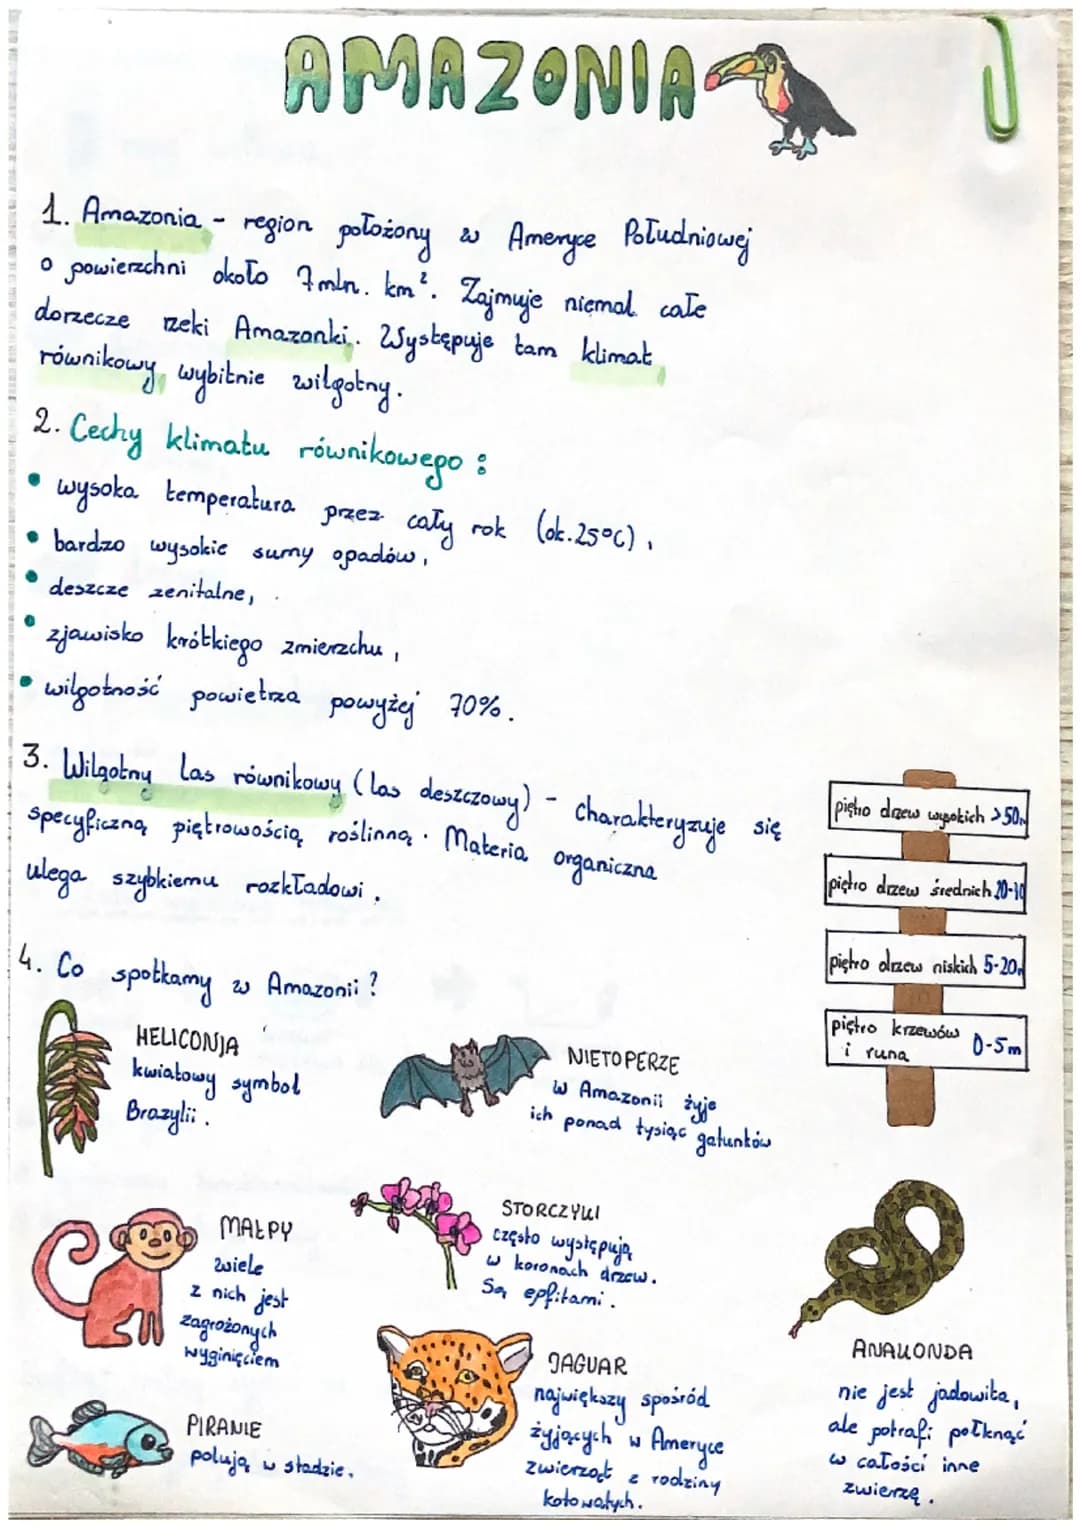 AMAZONIA
1. Amazonia - region położony w Ameryce Południowej
o powierzchni około 7 mln. km². Zajmuje niemal całe
dorzecze rzeki Amazonki. Występuje tam klimat
równikowy wybitnie wilgotny.
2. Cechy klimatu równikowego:
• wysoka temperatura przez cały rok (ok. 25°C),
• bardzo wysokie sumy opadów,
• deszcze zenitalne,
• zjawisko krótkiego zmierzchu,
• wilgotność powietrza powyżej 70%.
3. Wilgotny las równikowy (las deszczowy) - charakteryzuje się
specyficzną piętrowością roślinną. Materia organiczna
ulega szybkiemu rozkładowi.
piętro drzew wysokich >50m
piętro drzew średnich
piętro drzew niskich 5-20m
piętro krzewów
i runa 0-5m
4. Co spotkamy w Amazonii?
HELICONJA
kwiatowy symbol
Brazylii.
NIETOPERZE
w Amazonii żyje
ich ponad tysiąc gatunków
MAŁPY
wiele
z nich jest
zagrożonych
wyginięciem
STORCZYKI
często występują
w koronach drzew.
Są epfitami.
PIRANIE
polują w stadzie.
JAGUAR
największy spośród
żyjących w Ameryce
zwierząt z rodziny
kotowatych.
ANAKONDA
nie jest jadowita,
ale potrafi połknąć
w całości inne
zwierzę.